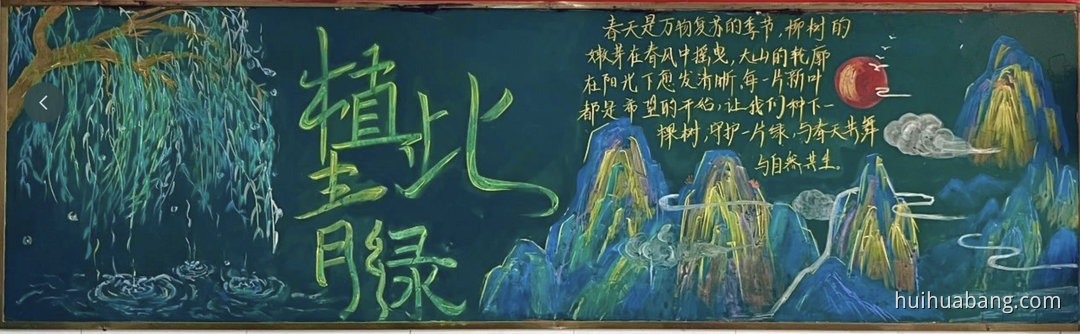 植此
青绿
春天是万物复苏的季节，柳树的
嫩芽在春风中摇曳，大山的轮廓
在阳光下愈发清晰，每一片新叶
都是希望的开始，让我们种下一
棵树，守护一片绿，与春天共舞
与自然共生。
huihuabang.com